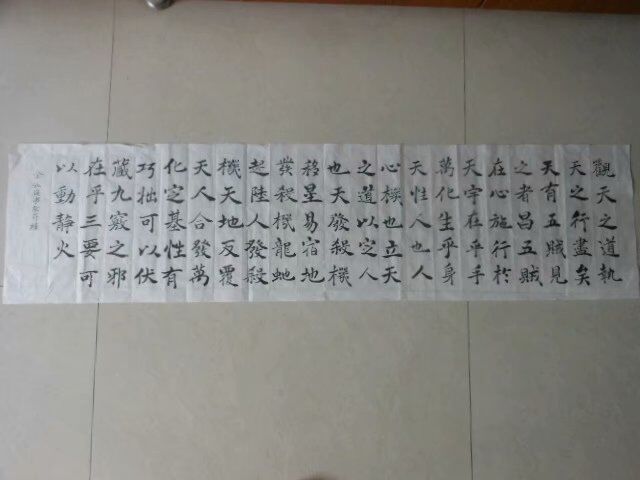 觀天之道執
天之行盡矣
天有五賊見
之者昌五賊
在心施行於
天宇在乎手
萬化生乎身
天性人也人
心機也立天
之道以定人
也天發殺機
移星易宿地
發殺機龍虵
起陸人發殺
機天地反覆
天人合發萬
化定基性有
巧拙可以伏
藏九竅之邪
在乎三要可
以動靜火